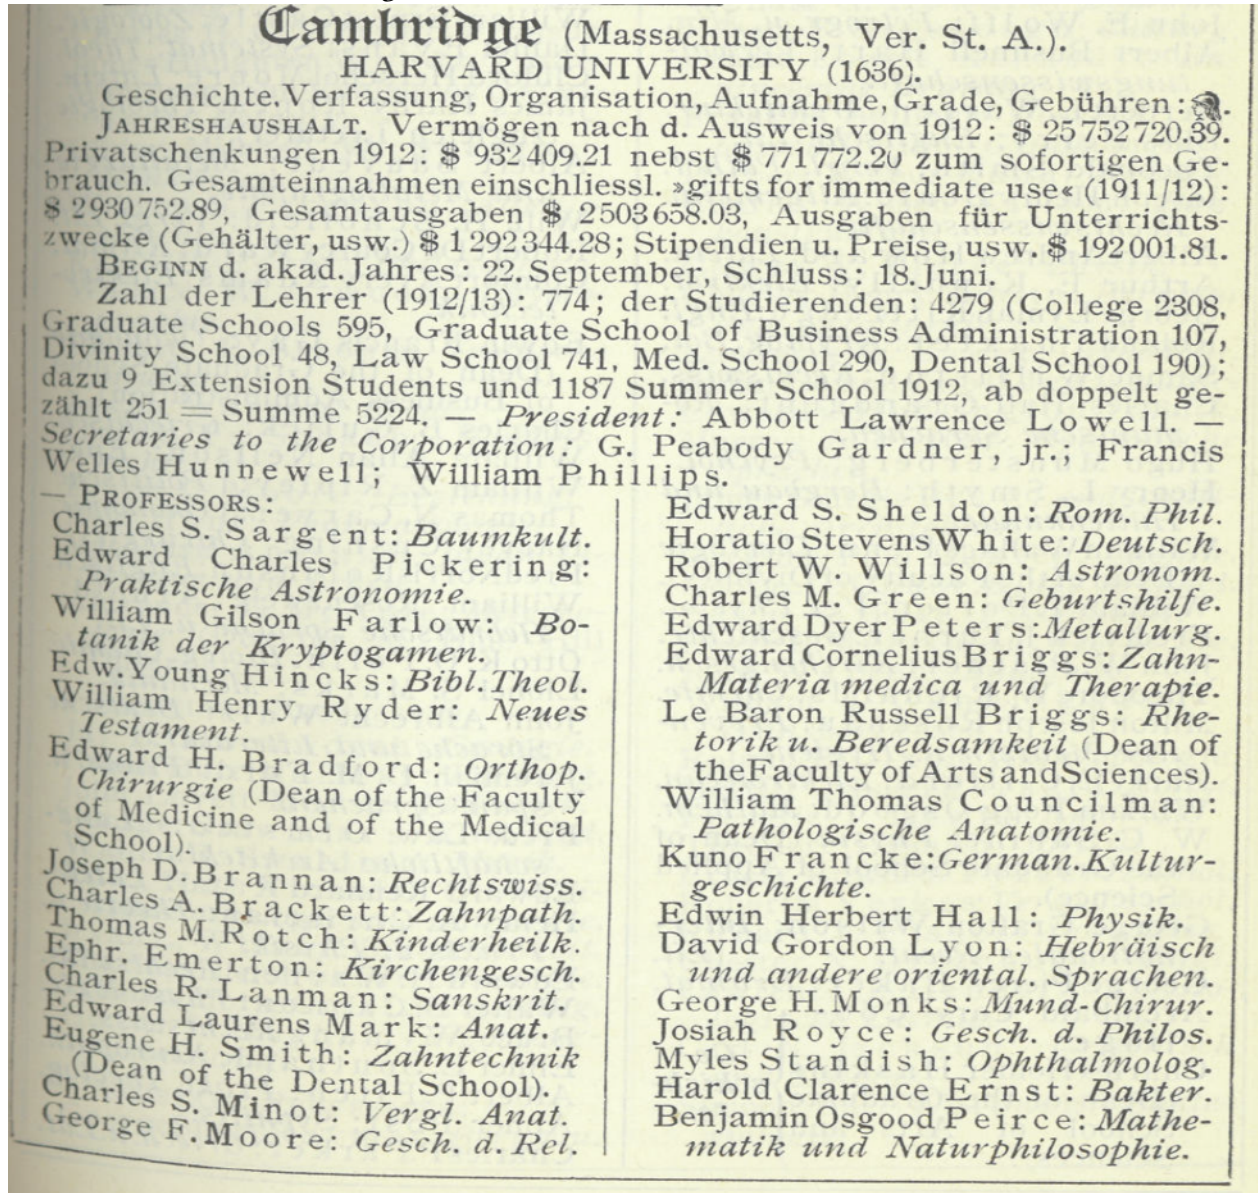 Cambridge (Massachusetts, Ver. St. A.).
HARVARD UNIVERSITY (1636).
Geschichte, Verfassung, Organisation, Aufnahme, Grade, Gebühren: .
JAHRESHAUSHALT. Vermögen nach d. Ausweis von 1912: $ 25 752 720.39.
Privatschenkungen 1912: $ 932 409.21 nebst $ 771 772.20 zum sofortigen Ge-
brauch. Gesamteinnahmen einschliessl. »gifts for immediate use« (1911/12):
$ 2 930 752.89, Gesamtausgaben $ 2 503 658.03, Ausgaben für Unterrichts-
zwecke (Gehälter, usw.) $ 1 292 344.28; Stipendien u. Preise, usw. $ 192 001.81.
BEGINN d. akad. Jahres: 22. September, Schluss: 18. Juni.
Zahl der Lehrer (1912/13): 774; der Studierenden: 4279 (College 2308,
Graduate Schools 595, Graduate School of Business Administration 107,
Divinity School 48, Law School 741, Med. School 290, Dental School 190);
dazu 9 Extension Students und 1187 Summer School 1912, ab doppelt ge-
zählt 251 = Summe 5224. — President: Abbott Lawrence Lowell. —
Secretaries to the Corporation: G. Peabody Gardner, jr.; Francis
Welles Hunnewell; William Phillips.
— PROFESSORS:
Charles S. Sargent: Baumkult.
Edward Charles Pickering:
Praktische Astronomie.
William Gilson Farlow: Bo-
tanik der Kryptogamen.
Edw. Young Hincks: Bibl. Theol.
William Henry Ryder: Neues
Testament.
Edward H. Bradford: Orthop.
Chirurgie (Dean of the Faculty
of Medicine and of the Medical
School).
Joseph D. Brannan: Rechtswiss.
Charles A. Brackett: Zahnpath.
Thomas M. Rotch: Kinderheilk.
Ephr. Emerton: Kirchengesch.
Charles R. Lanman: Sanskrit.
Edward Laurens Mark: Anat.
Eugene H. Smith: Zahntechnik
(Dean of the Dental School).
Charles S. Minot: Vergl. Anat.
George F. Moore: Gesch. d. Rel.
Edward S. Sheldon: Rom. Phil.
Horatio Stevens White: Deutsch.
Robert W. Willson: Astronom.
Charles M. Green: Geburtshilfe.
Edward Dyer Peters: Metallurg.
Edward Cornelius Briggs: Zahn-
Materia medica und Therapie.
Le Baron Russell Briggs: Rhe-
torik u. Beredsamkeit (Dean of
the Faculty of Arts and Sciences).
William Thomas Councilman:
Pathologische Anatomie.
Kuno Francke: German. Kultur-
geschichte.
Edwin Herbert Hall: Physik.
David Gordon Lyon: Hebräisch
und andere oriental. Sprachen.
George H. Monks: Mund-Chirur.
Josiah Royce: Gesch. d. Philos.
Myles Standish: Ophthalmolog.
Harold Clarence Ernst: Bakter.
Benjamin Osgood Peirce: Mathe-
matik und Naturphilosophie.